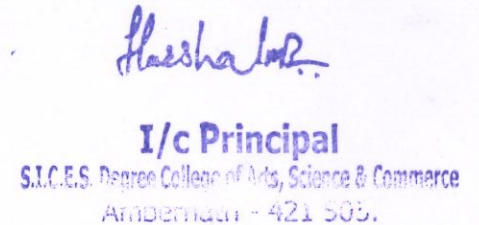 I/c Principal
S.I.C.E.S. Degree College of Arts, Science & Commerce
Ambernath - 421 505.